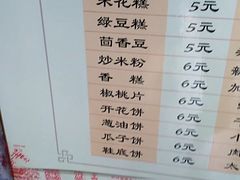 米花糕 5元
绿豆糕 5元
茴香豆 5元
炒米粉 6元
香糕 6元
椒桃片 6元
开花饼 6元
葱油饼 6元
瓜子饼 6元
鞋底饼 6元